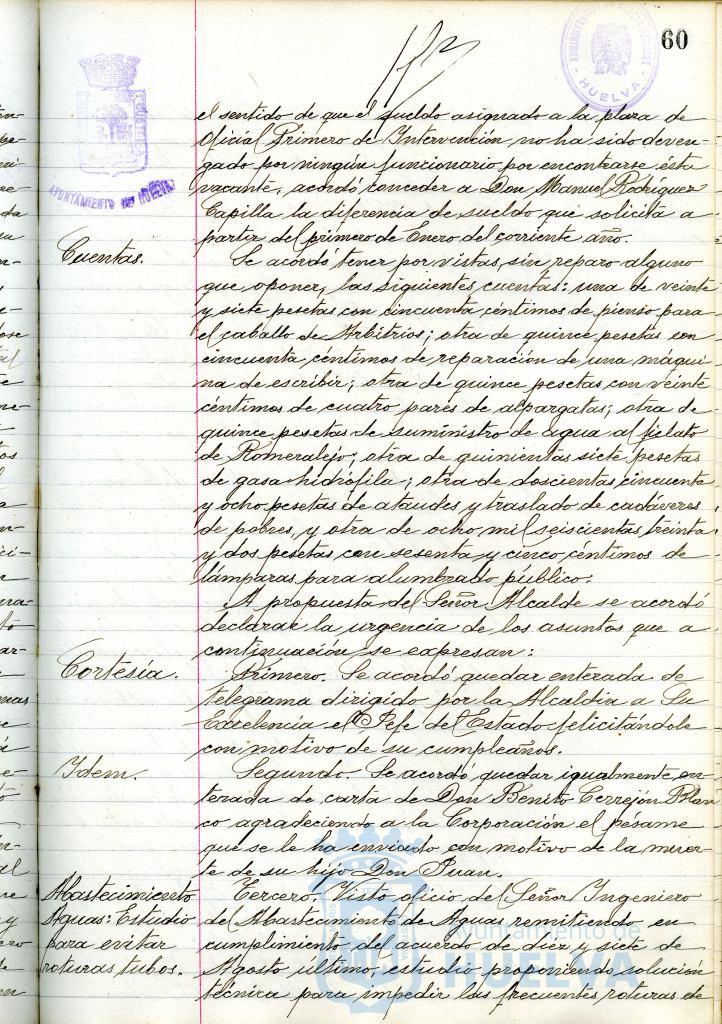 60
ADMINISTRACION
HUELVA
AYUNTAMIENTO DE HUELVA
el sentido de que el sueldo asignado a la plaza de
Oficial Primero de Intervención no ha sido deven-
gado por ningún funcionario por encontrarse ésta
vacante, acordó conceder a Don Manuel Rodriguez
Capilla la diferencia de sueldo que solicita a
partir del primero de Enero del corriente año.
Cuentas.
Se acordó tener por vistas, sin reparo alguno
que oponer, las siguientes cuentas: una de veinte
y siete pesetas con cincuenta céntimos de pienso para
el caballo de Arbitrios; otra de quince pesetas con
cincuenta céntimos de reparación de una máqui
na de escribir; otra de quince pesetas con veinte
céntimos de cuatro pares de alpargatas; otra de
quince pesetas de suministro de agua al fielato
de Romeralejo; otra de quinientas siete pesetas
de gasa hidrófila; otra de doscientas cincuenta
y ocho pesetas de ataudes y traslado de cadáveres
de pobres, y otra de ocho mil seiscientas treinta
y dos pesetas con sesenta y cinco céntimos de
lámparas para alumbrado público.
A propuesta del Señor Alcalde se acordó
declarar la urgencia de los asuntos que a
continuación se expresan:
Cortesía.
Primero. Se acordó quedar enterada de
telegrama dirigido por la Alcaldia a Su
Excelencia el Jefe del Estado felicitándole
con motivo de su cumpleaños.
Idem.
Segundo. Se acordó quedar igualmente en-
terada de carta de Don Benito Cerrejón Blan
co agradeciendo a la Corporación el pésame
que se le ha enviado con motivo de la muer-
te de su hijo Don Juan.
Abastecimiento
Aguas: Estudio
para evitar
roturas tubos.
Tercero. Visto oficio del Señor Ingeniero
de Abastecimiento de Aguas remitiendo en
cumplimiento del acuerdo de diez y siete de
Agosto último, estudio proponiendo solución
técnica para impedir las frecuentes roturas de
Ayuntamiento de
HUELVA